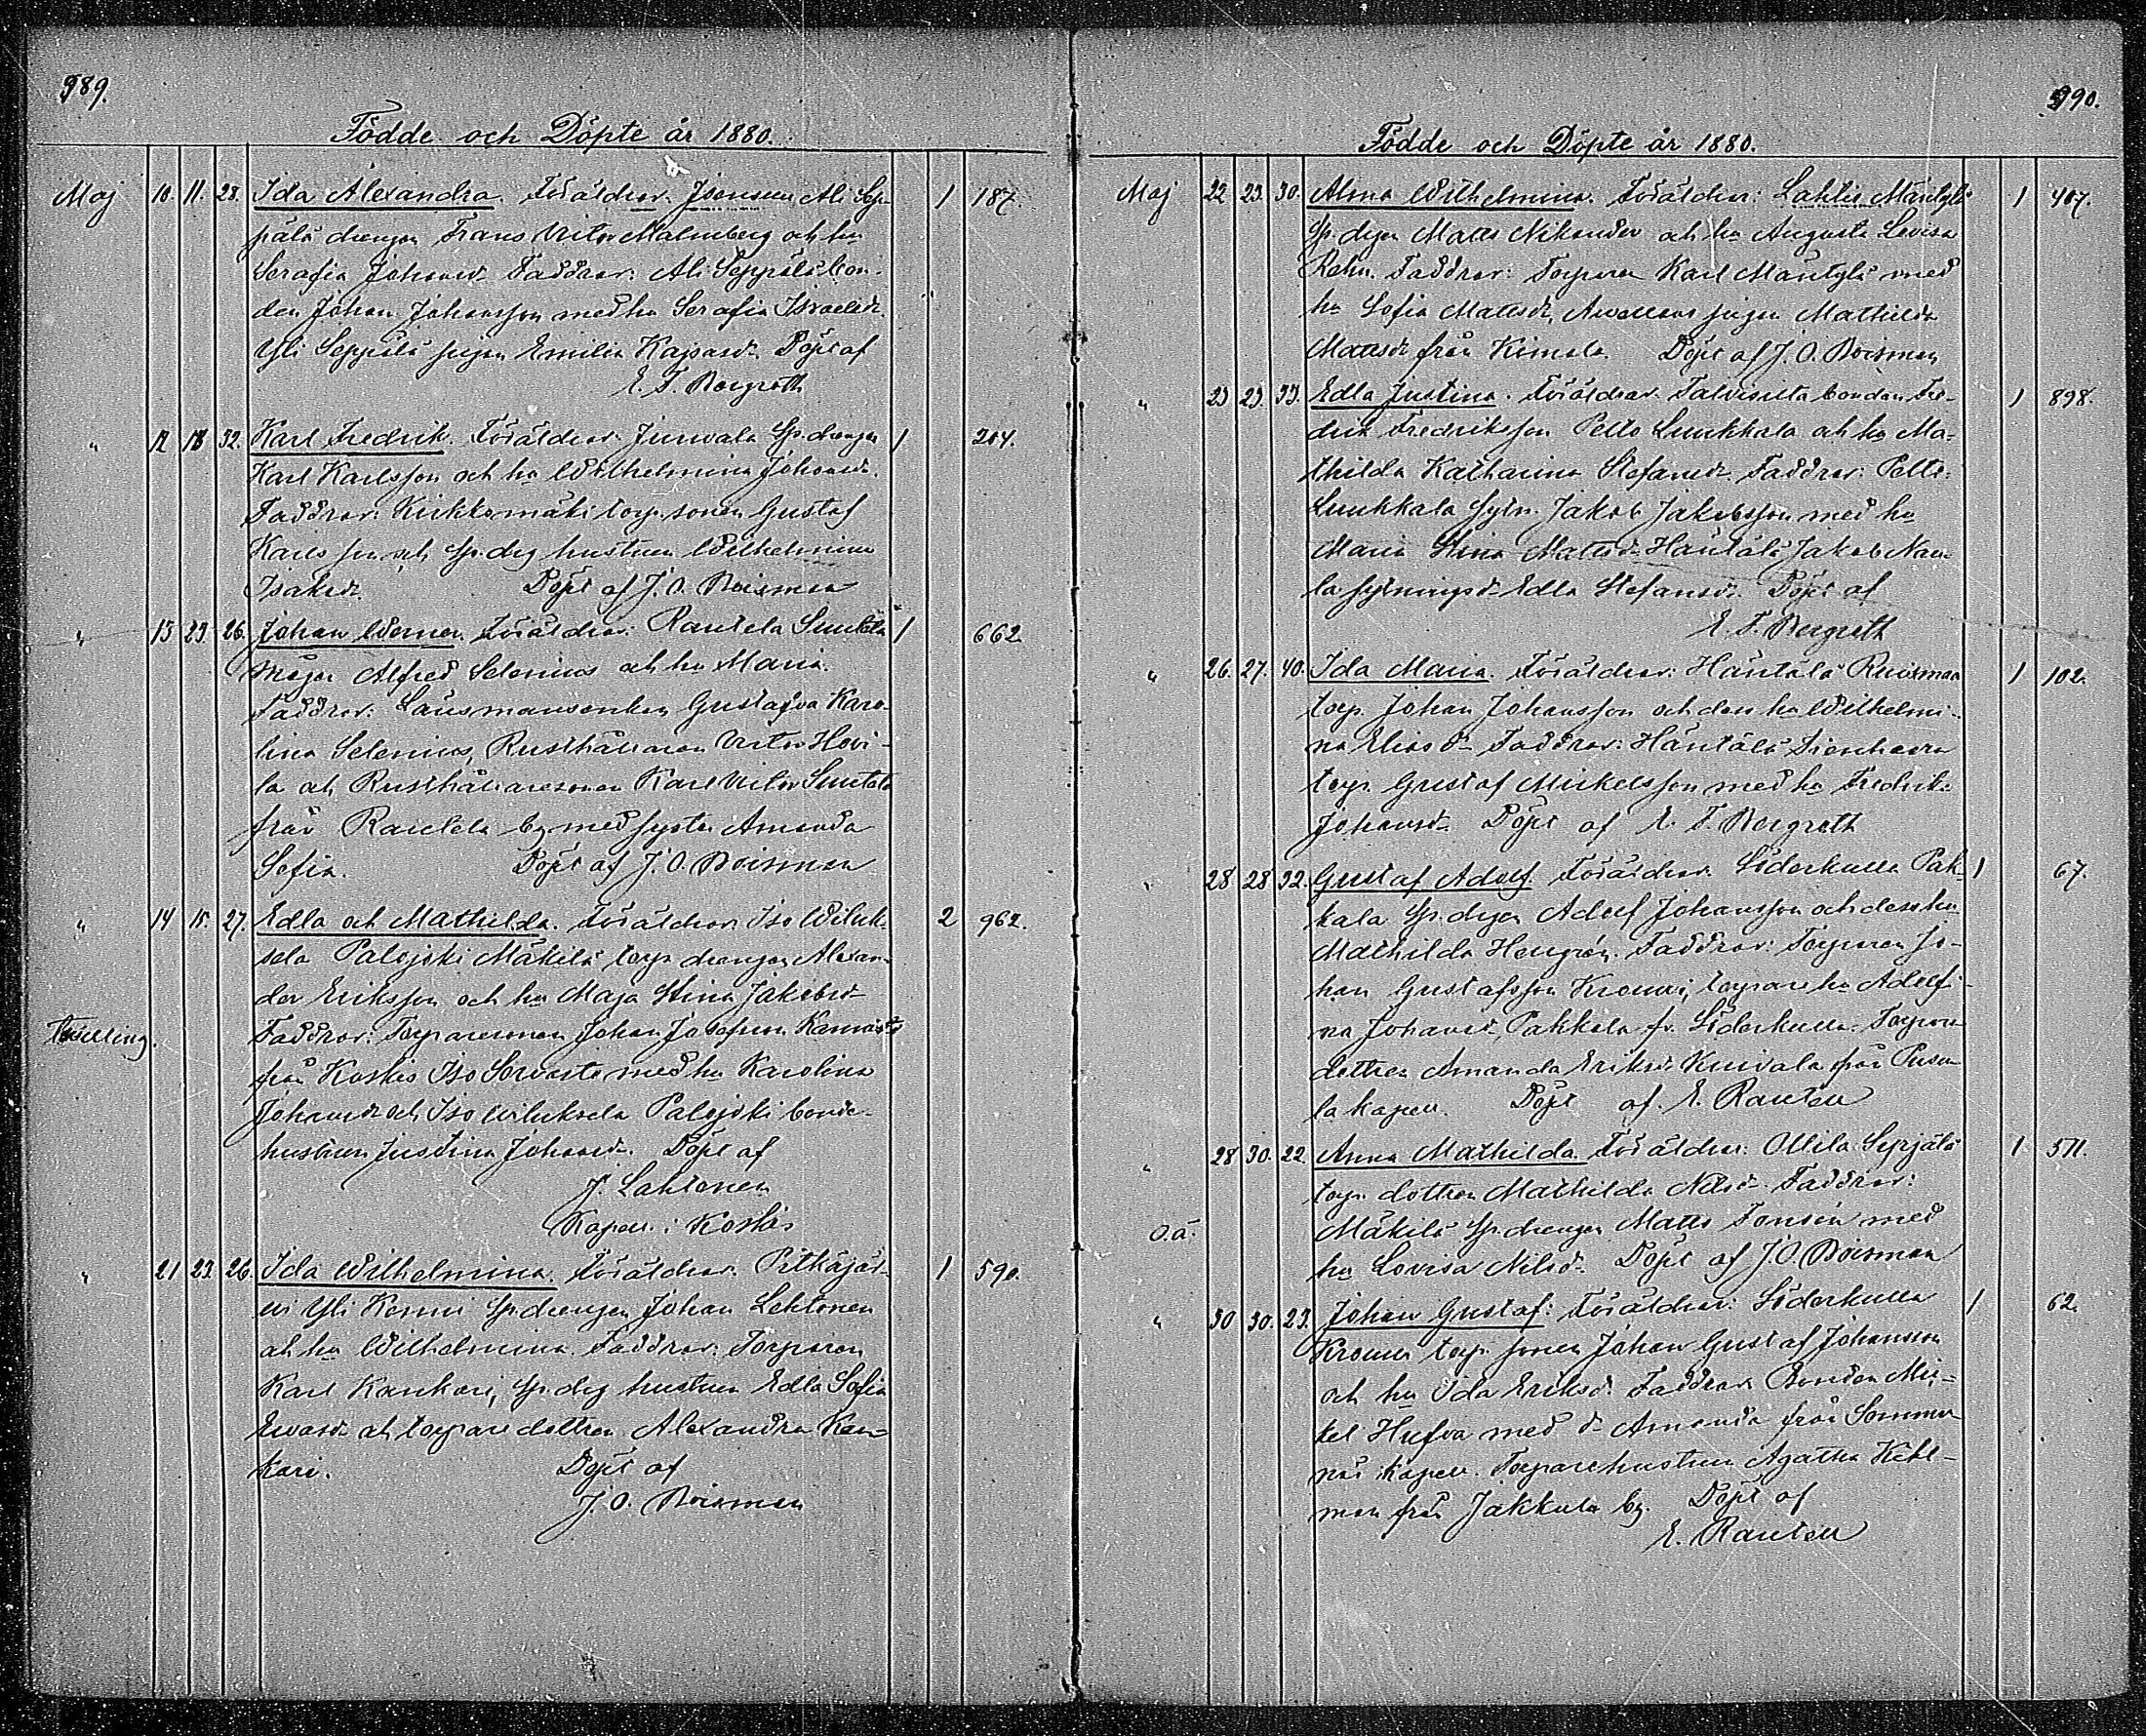 989.
Födde och Döpte år 1880.
Maj 10. 11. 28. Ida Alexandra. Föräldrar: Isonsuu Ali Sep- 1 187.
pälä drengen Frans Victor Malmberg och hu
Serafia Johansdr Faddrar: Ali Seppälä bon-
den Johan Johansson med hu Serafia Israelsdr
Yli Seppälä pigan Emilia Kajsasdr. Döpt af
E. F. Bergroth
" 12 18 32. Karl Fredrik. Föräldrar: Jurvala Sp. drengen 1 204.
Karl Karlsson och hu Wilhelmina Johansdr.
Faddrar: Kirkkomäki torp. sonen Gustaf
Karlsson och Sp. drg hustrun Wilhelmina
Isaksdr. Döpt af J. O. Roisman
" 13 23 26. Johan Werner. Föräldrar: Rautela Suutela 1 662
mågen Alfred Selenius och hu Maria.
Faddrar: Länsmansenkan Gustafva Karo-
lina Selenius, Rusthållaren Victor Hovi-
la och Rusthållaresonen Karl Victor Suutela
från Rautela by med syster Amanda
Sofia. Döpt af J. O. Roisman
" 14 15. 27. Edla och Mathilda. Föräldrar: Iso Wiluk- 2 962.
sela Palojoki Mäkilä torp drengen Alexan-
der Eriksson och hu Maja Stina Jakobsdr
Tvilling. Faddrar: Torparesonen Johan Josefsson
från Koskis Iso Sorvasto med hu Karolina
Johansdr och Iso Wiluksela Palojoki bonde-
hustrun Justina Johansdr. Döpt af
J. Lahtonen
Kapell. i Koskis
" 21 23. 26. Ida Wilhelmina. Föräldrar: Pitkäjär- 1 590.
wi Yli Kenni Sp. drengen Johan Lehtonen
och hu Wilhelmina. Faddrar: Torparen
Karl Kankari, Sp. drg hustrun Edla Sofia
Ewasdr och torpare dottren Alexandra Kan-
kari. Döpt af
J. O. Roisman
990.
Födde och Döpte år 1880.
Maj 22 23. 30. Alma Wilhelmina. Föräldrar: Lahtis Mäntylä 1 407.
Sp. drgen Matts Nikander och hu Augusta Lovisa
Rehn. Faddrar: Torparen Karl Mäntylä med
hu Sofia Mattsdr, pigan Mathilda
Mattsdr från Kimala. Döpt af J. O. Roisman
" 23 23. 33. Edla Justina. Föräldrar: Talvisilta bonden Fre- 1 898.
drik Fredriksson Pelto Luukkala och hu Ma-
thilda Katharina Stefansdr. Faddrar: Pelto-
Luukkala sytn. Jakob Jakobsson med hu
Maria Stina Mattsdr Häntälä Jakob Nau-
la sytningsd. Edla Stefansdr. Döpt af
E. F. Bergroth
" 26. 27. 40. Ida Maria. Föräldrar: Häntälä Ruisman 1 102.
torp. Johan Johansson och dess hu Wilhelmi-
na Eliasdr Faddrar: Häntälä Sienhaara
torp. Gustaf Mickelsson med hu Fredrika
Johansdr. Döpt af E. F. Bergroth
" 28 28 32. Gustaf Adolf. Föräldrar: Söderkulla Pak- 1 67.
kala Sp. drgen Adolf Johansson och dess hu
Mathilda Hellgrén. Faddrar: Torparen Jo-
han Gustafsson Krouvi, torpare hu Adolfi-
na Johansdr, Pakkala fr. Söderkulla. Torpare
dottren Amanda Eriksdr Kuivala från Pusu-
la kapell. Döpt af. E. Rautell
" 28 30. 22. Anna Mathilda. Föräldrar: Ollila Syrjälä 1 511.
torp. dottren Mathilda Nilsdr. Faddrar:
o.ä. Mäkilä Sp. drengen Matts Tonsén med
hu Lovisa Nilsdr. Döpt af J. O. Roisman
" 30 30. 23. Johan Gustaf: Föräldrar: Söderkulla 1 62.
Krouvi torp. sonen Johan Gustaf Johansson
och hu Ida Eriksdr. Faddrar Bonden Mic-
kel Hufva med d. Amanda från Sommar-
näs kapell. Torparehustrun Agatha Kihl-
man från Jakkula by. Döpt af
E. Rautell